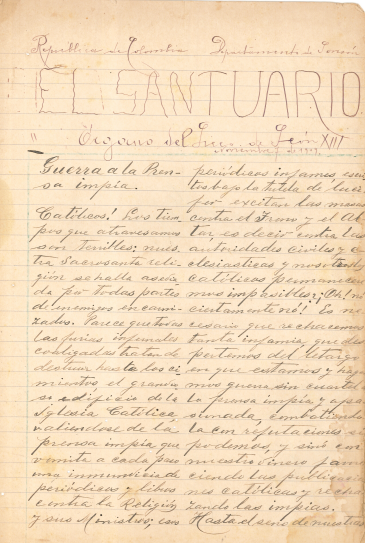 Republica de Colombia Departamento de
EL SANTUARIO
"Organo del de León XIII
Noviembre
Guerra a la Pren-
sa impia.
Católicos! Los tiem-
pos que atravesamos
son terribles; nues-
tra Sacrosanta reli-
gión se halla asedia-
da por todas partes
de enemigos encarni-
zados. Parece que todas
las furias infernales
coaligadas tratan de
destruir hasta los ci-
mientos, el grandio-
so edificio de la
Iglesia Católica
valiendose de la
prensa impia que
vomita a cada paso
una inmundicia de
periódicos y libros
contra la Religión
y sus Ministros, con
periódicos infames, escri-
tos bajo la tutela de Luci-
fer excitan las masas
contra el Trono y el Al-
tar es decir contra las
autoridades civiles y e-
clesiasticas y nosotros
católicos permanece-
mos impasibles; Oh! no
ciertamente nó! Es ne-
cesario que rechacemos
tanta infamia, que des-
pertemos del letargo
en que estamos y haga-
mos guerra sin cuartel
a la prensa impia y apa-
sionada, combatiendo
la con refutaciones si
podemos, y sinó con
nuestro dinero favore-
ciendo las publicacio-
nes católicas y recha-
zando las impias.
Hasta el seno de nuestras